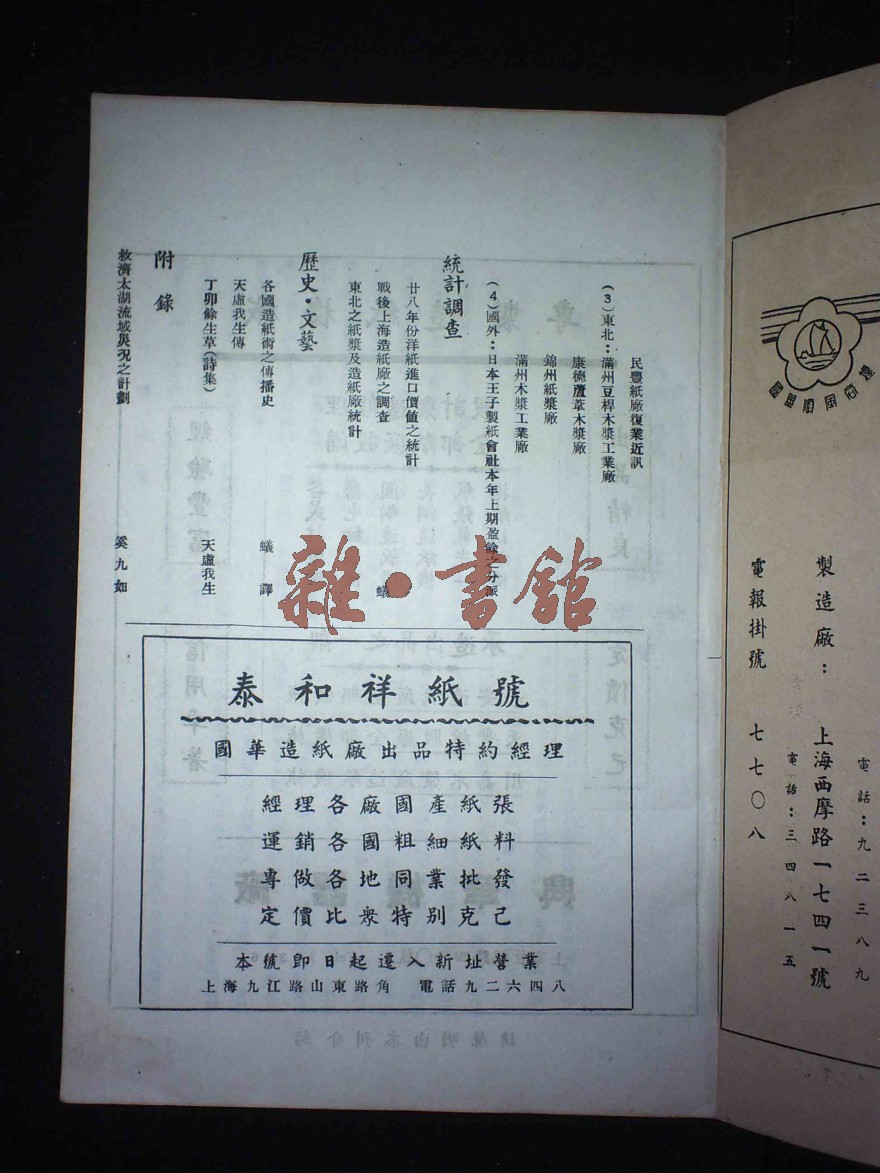 民豐紙廠復業近訊
(3)東北：滿州豆桿木漿工業廠
康德蘆葦木漿廠
錦州紙漿廠
滿州木漿工業廠
(4)國外：日本王子製紙會社本年上期盈餘之分派
統計調查
廿八年份洋紙進口價值之統計
戰後上海造紙廠之調查 蟻
東北之紙漿及造紙廠統計
歷史・文藝
各國造紙術之傳播史 蟻譯
天虛我生傳
丁卯餘生草(詩集) 天虛我生
附錄
救濟太湖流域災況之計劃 奚九如
泰和祥紙號
國華造紙廠出品特約經理
經理各廠國產紙張
運銷各國粗細紙料
專做各地同業批發
定價比衆特別克己
本號即日起遷入新址營業
上海九江路山東路角 電話九二六四八
雜・書館
電話：九二三八九
製造廠：上海西摩路一七四一號
電話：三四八一五
電報掛號 七七〇八